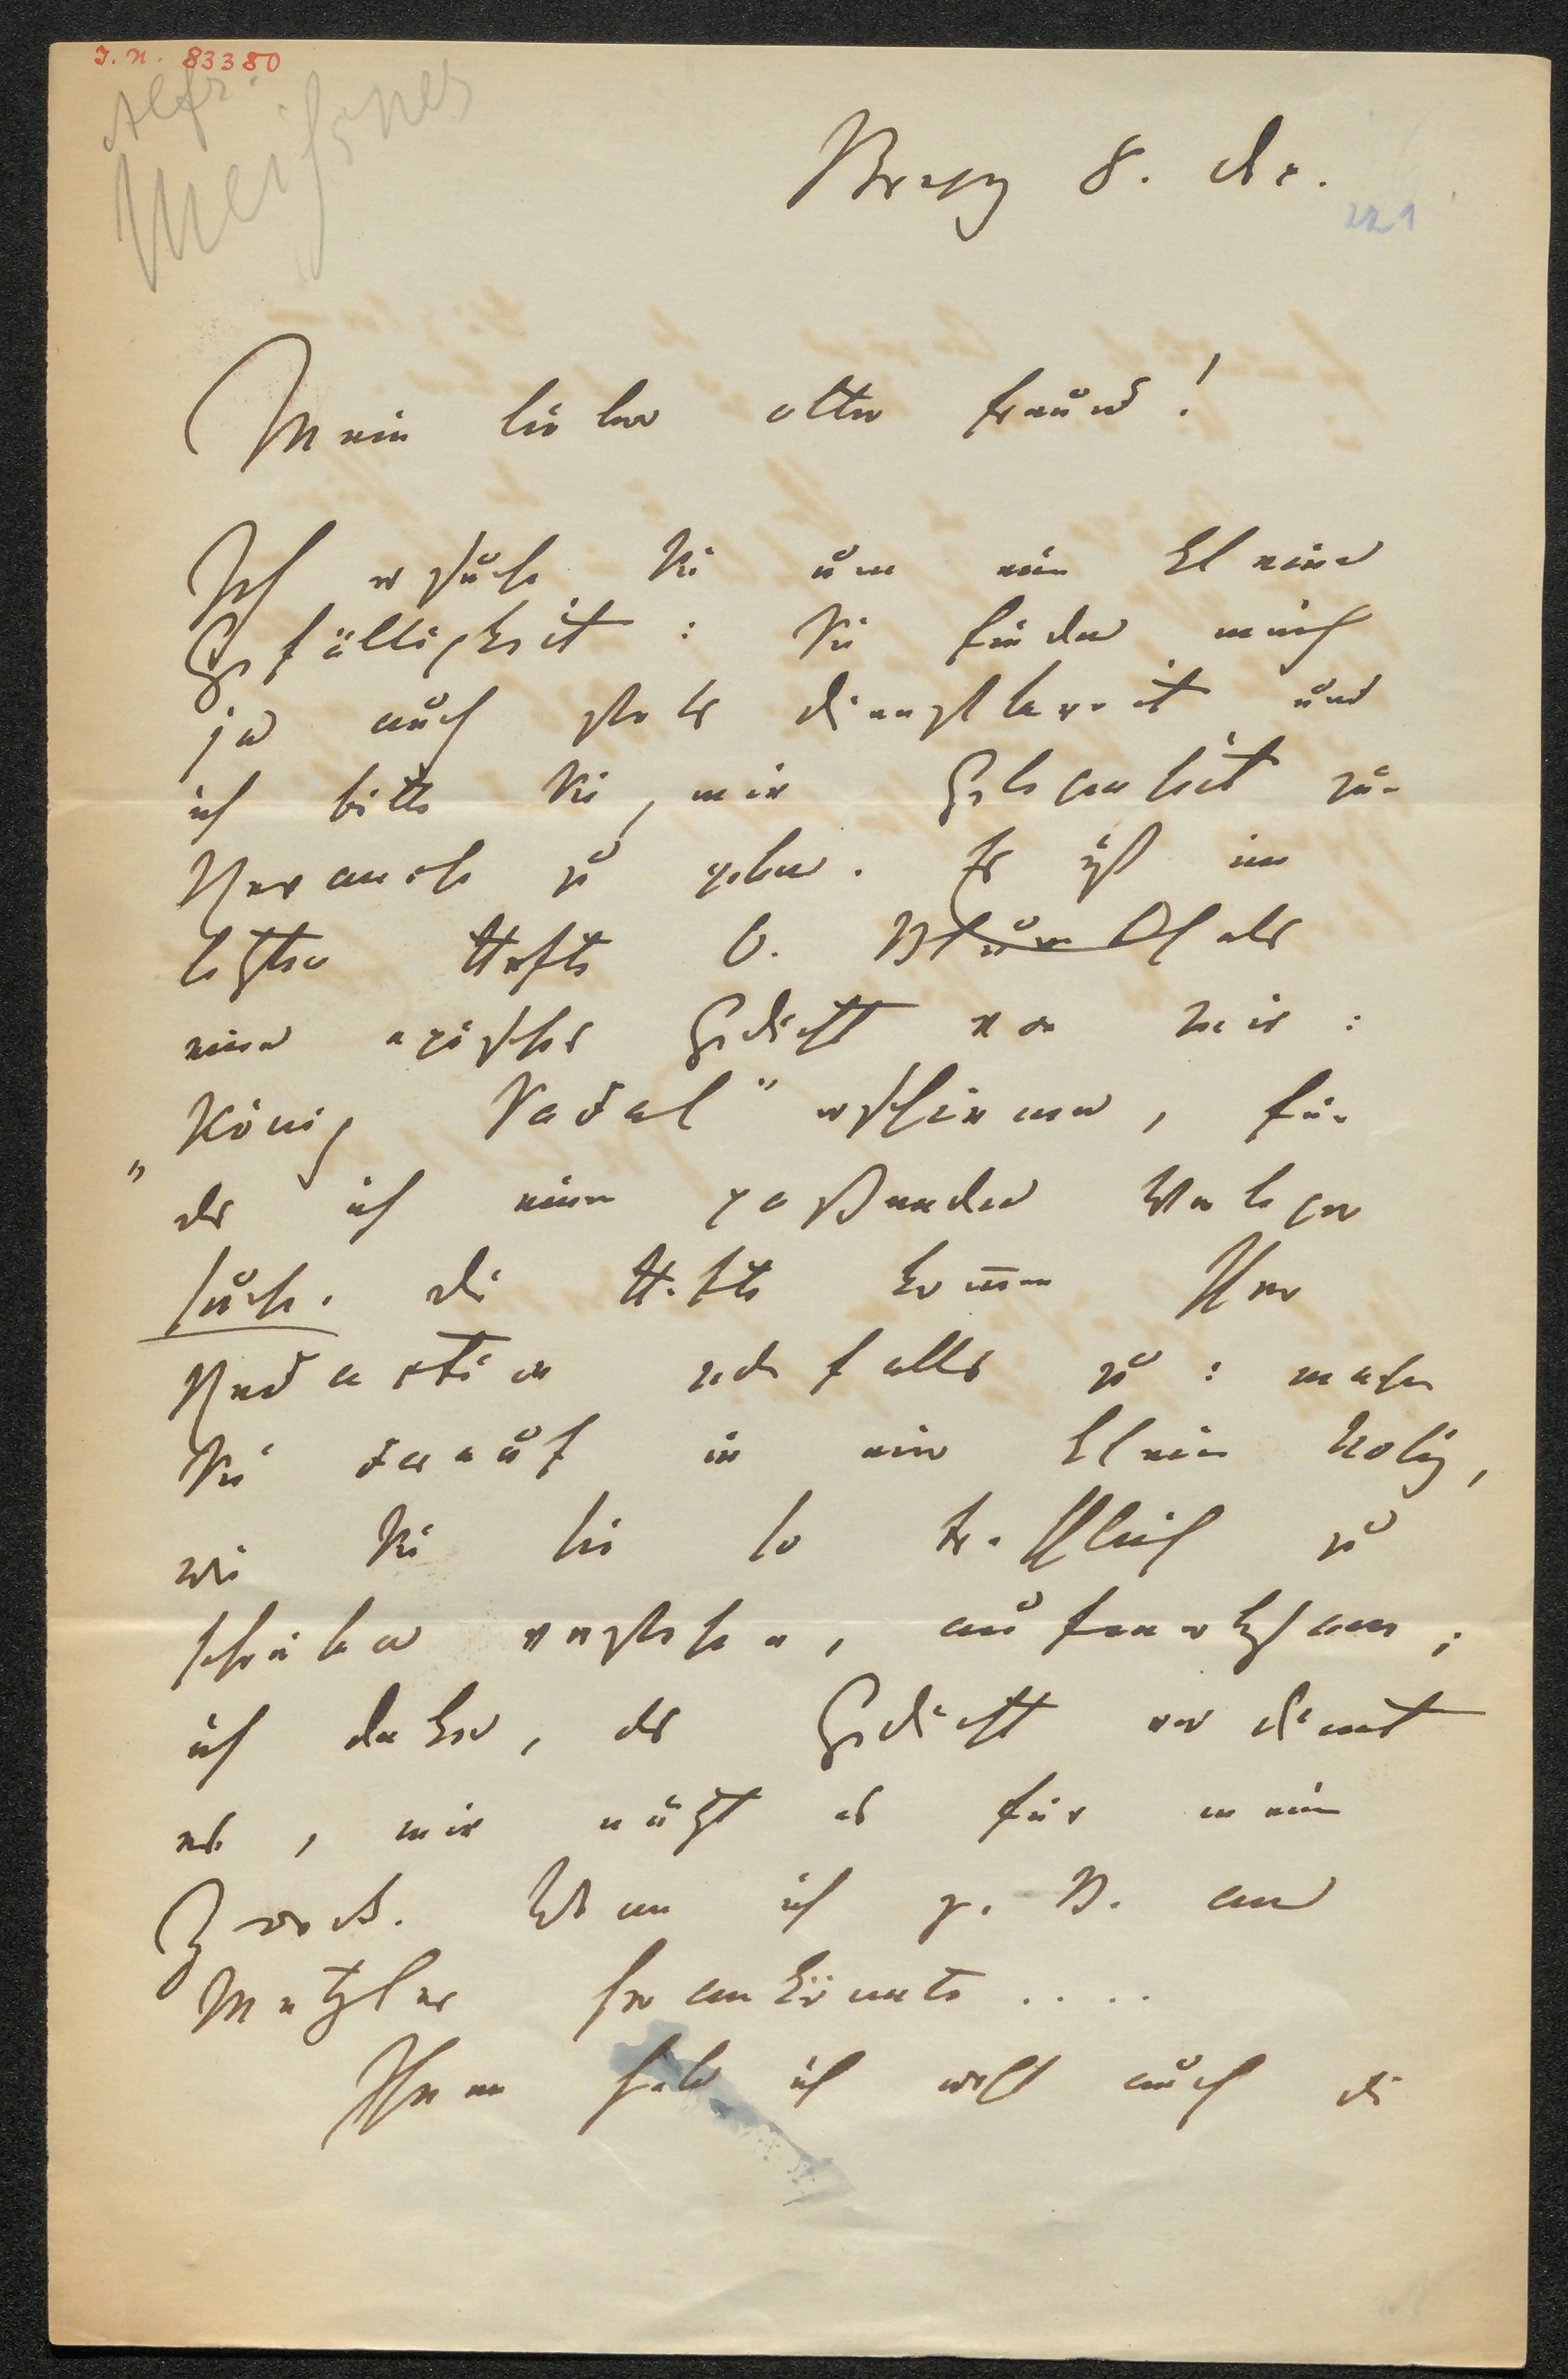 I. N. 83380
Alfr.
Meißner
Bregz 8. Dz.
221
Mein lieber alter Freund!
Ich ersuche Sie um eine kleine
Gefälligkeit: Sie finden mich
ja auch stets dienstbereit und
ich bitte Sie, mir Gelegenheit zur
Revanche zu geben. Es ist im
letzten Hefte v. als
ein episches Gedicht von mir:
„König Sadal" erschienen, für
das ich einen paßenden Verleger
suche. Die Hefte kommen Ihrer
Redaction jedenfalls zu: machen
Sie darauf in einer kleinen Notiz,
wie Sie sie so trefflich zu
schreiben verstehen, aufmerksam;
ich denke, das Gedicht verdient
es, mir nützt es für meine
Zwecke. Wenn ich z. B. an
Metzler herankönnte ....
Ihnen habe ich wohl auch die